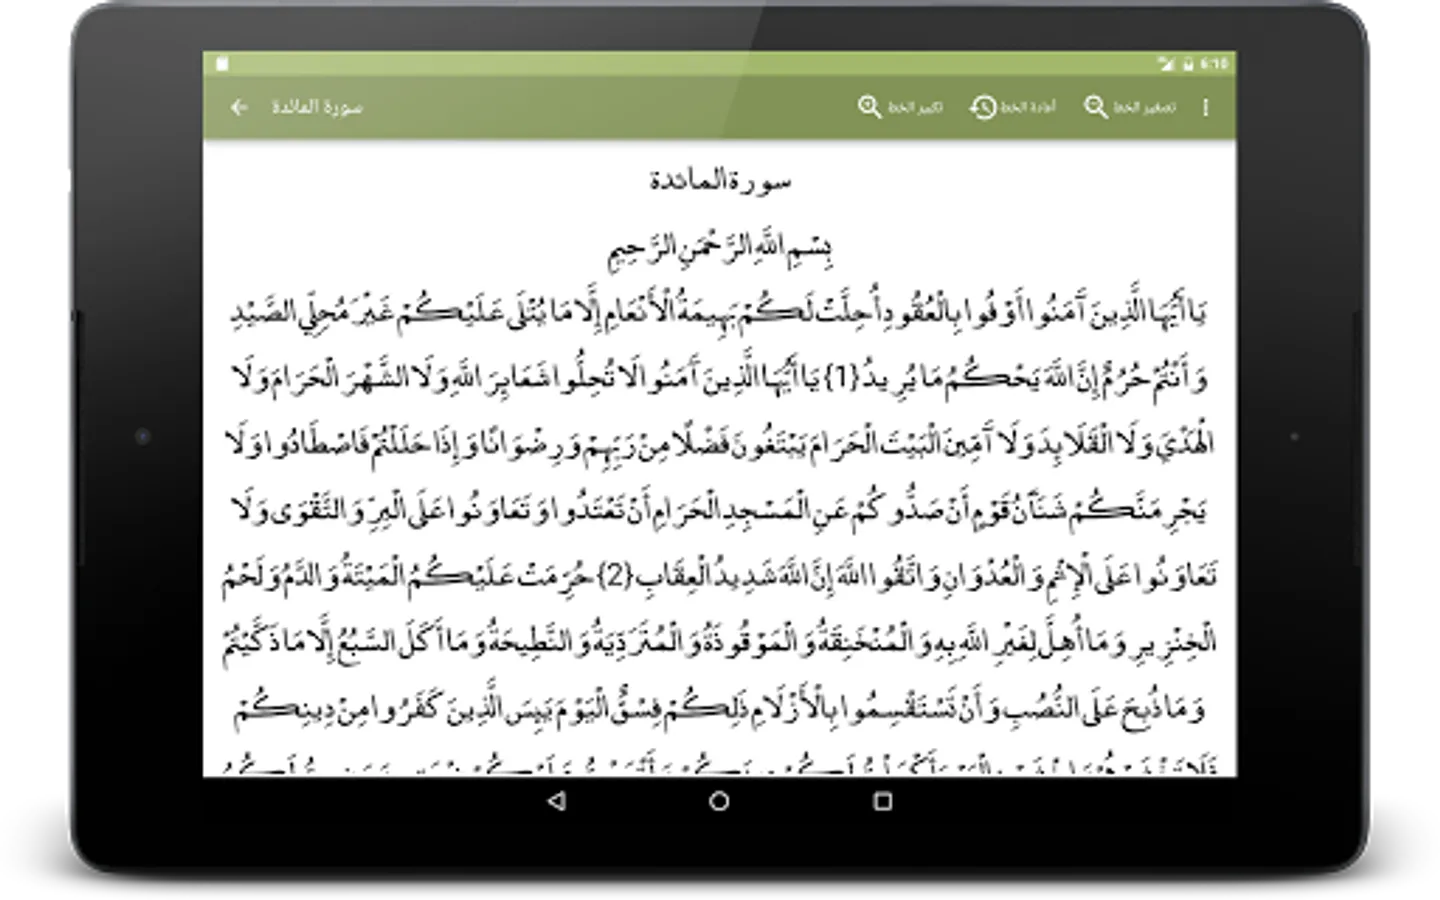 6:10
سورة المائدة
تكبير الخط
اعادة الخط
تصغير الخط
سورة المائدة
بِسْمِ اللَّهِ الرَّحْمَنِ الرَّحِيمِ
يَا أَيُّهَا الَّذِينَ آَمَنُوا أَوْفُوا بِالْعُقُودِ أُحِلَّتْ لَكُمْ بَهِيمَةُ الْأَنْعَامِ إِلَّا مَا يُتْلَى عَلَيْكُمْ غَيْرَ مُحِلِّي الصَّيْدِ
وَأَنْتُمْ حُرُمٌ إِنَّ اللَّهَ يَحْكُمُ مَا يُرِيدُ {1} يَا أَيُّهَا الَّذِينَ آَمَنُوا لَا تُحِلُّوا شَعَايِرَ اللَّهِ وَلَا الشَّهْرَ الْحَرَامَ وَلَا
الْهَدْيَ وَلَا الْقَلَايِدَ وَلَا آَمِّينَ الْبَيْتَ الْحَرَامَ يَبْتَغُونَ فَضْلًا مِنْ رَبِّهِمْ وَرِضْوَانًا وَإِذَا حَلَلْتُمْ فَاصْطَادُوا وَلَا
يَجْرِمَنَّكُمْ شَنَآَنُ قَوْمٍ أَنْ صَدُّوكُمْ عَنِ الْمَسْجِدِ الْحَرَامِ أَنْ تَعْتَدُوا وَتَعَاوَنُوا عَلَى الْبِرِّ وَالتَّقْوَى وَلَا
تَعَاوَنُوا عَلَى الْإِثْمِ وَالْعُدْوَانِ وَاتَّقُوا اللَّهَ إِنَّ اللَّهَ شَدِيدُ الْعِقَابِ {2} حُرِّمَتْ عَلَيْكُمُ الْمَيْتَةُ وَالدَّمُ وَلَحْمُ
الْخِنْزِيرِ وَمَا أُهِلَّ لِغَيْرِ اللَّهِ بِهِ وَالْمُنْخَنِقَةُ وَالْمَوْقُوذَةُ وَالْمُتَرَدِّيَةُ وَالنَّطِيحَةُ وَمَا أَكَلَ السَّبُعُ إِلَّا مَا ذَكَّيْتُمْ
وَمَا ذُبِحَ عَلَى النُّصُبِ وَأَنْ تَسْتَقْسِمُوا بِالْأَزْلَامِ ذَلِكُمْ فِسْقٌ الْيَوْمَ يَيِسَ الَّذِينَ كَفَرُوا مِنْ دِينِكُمْ